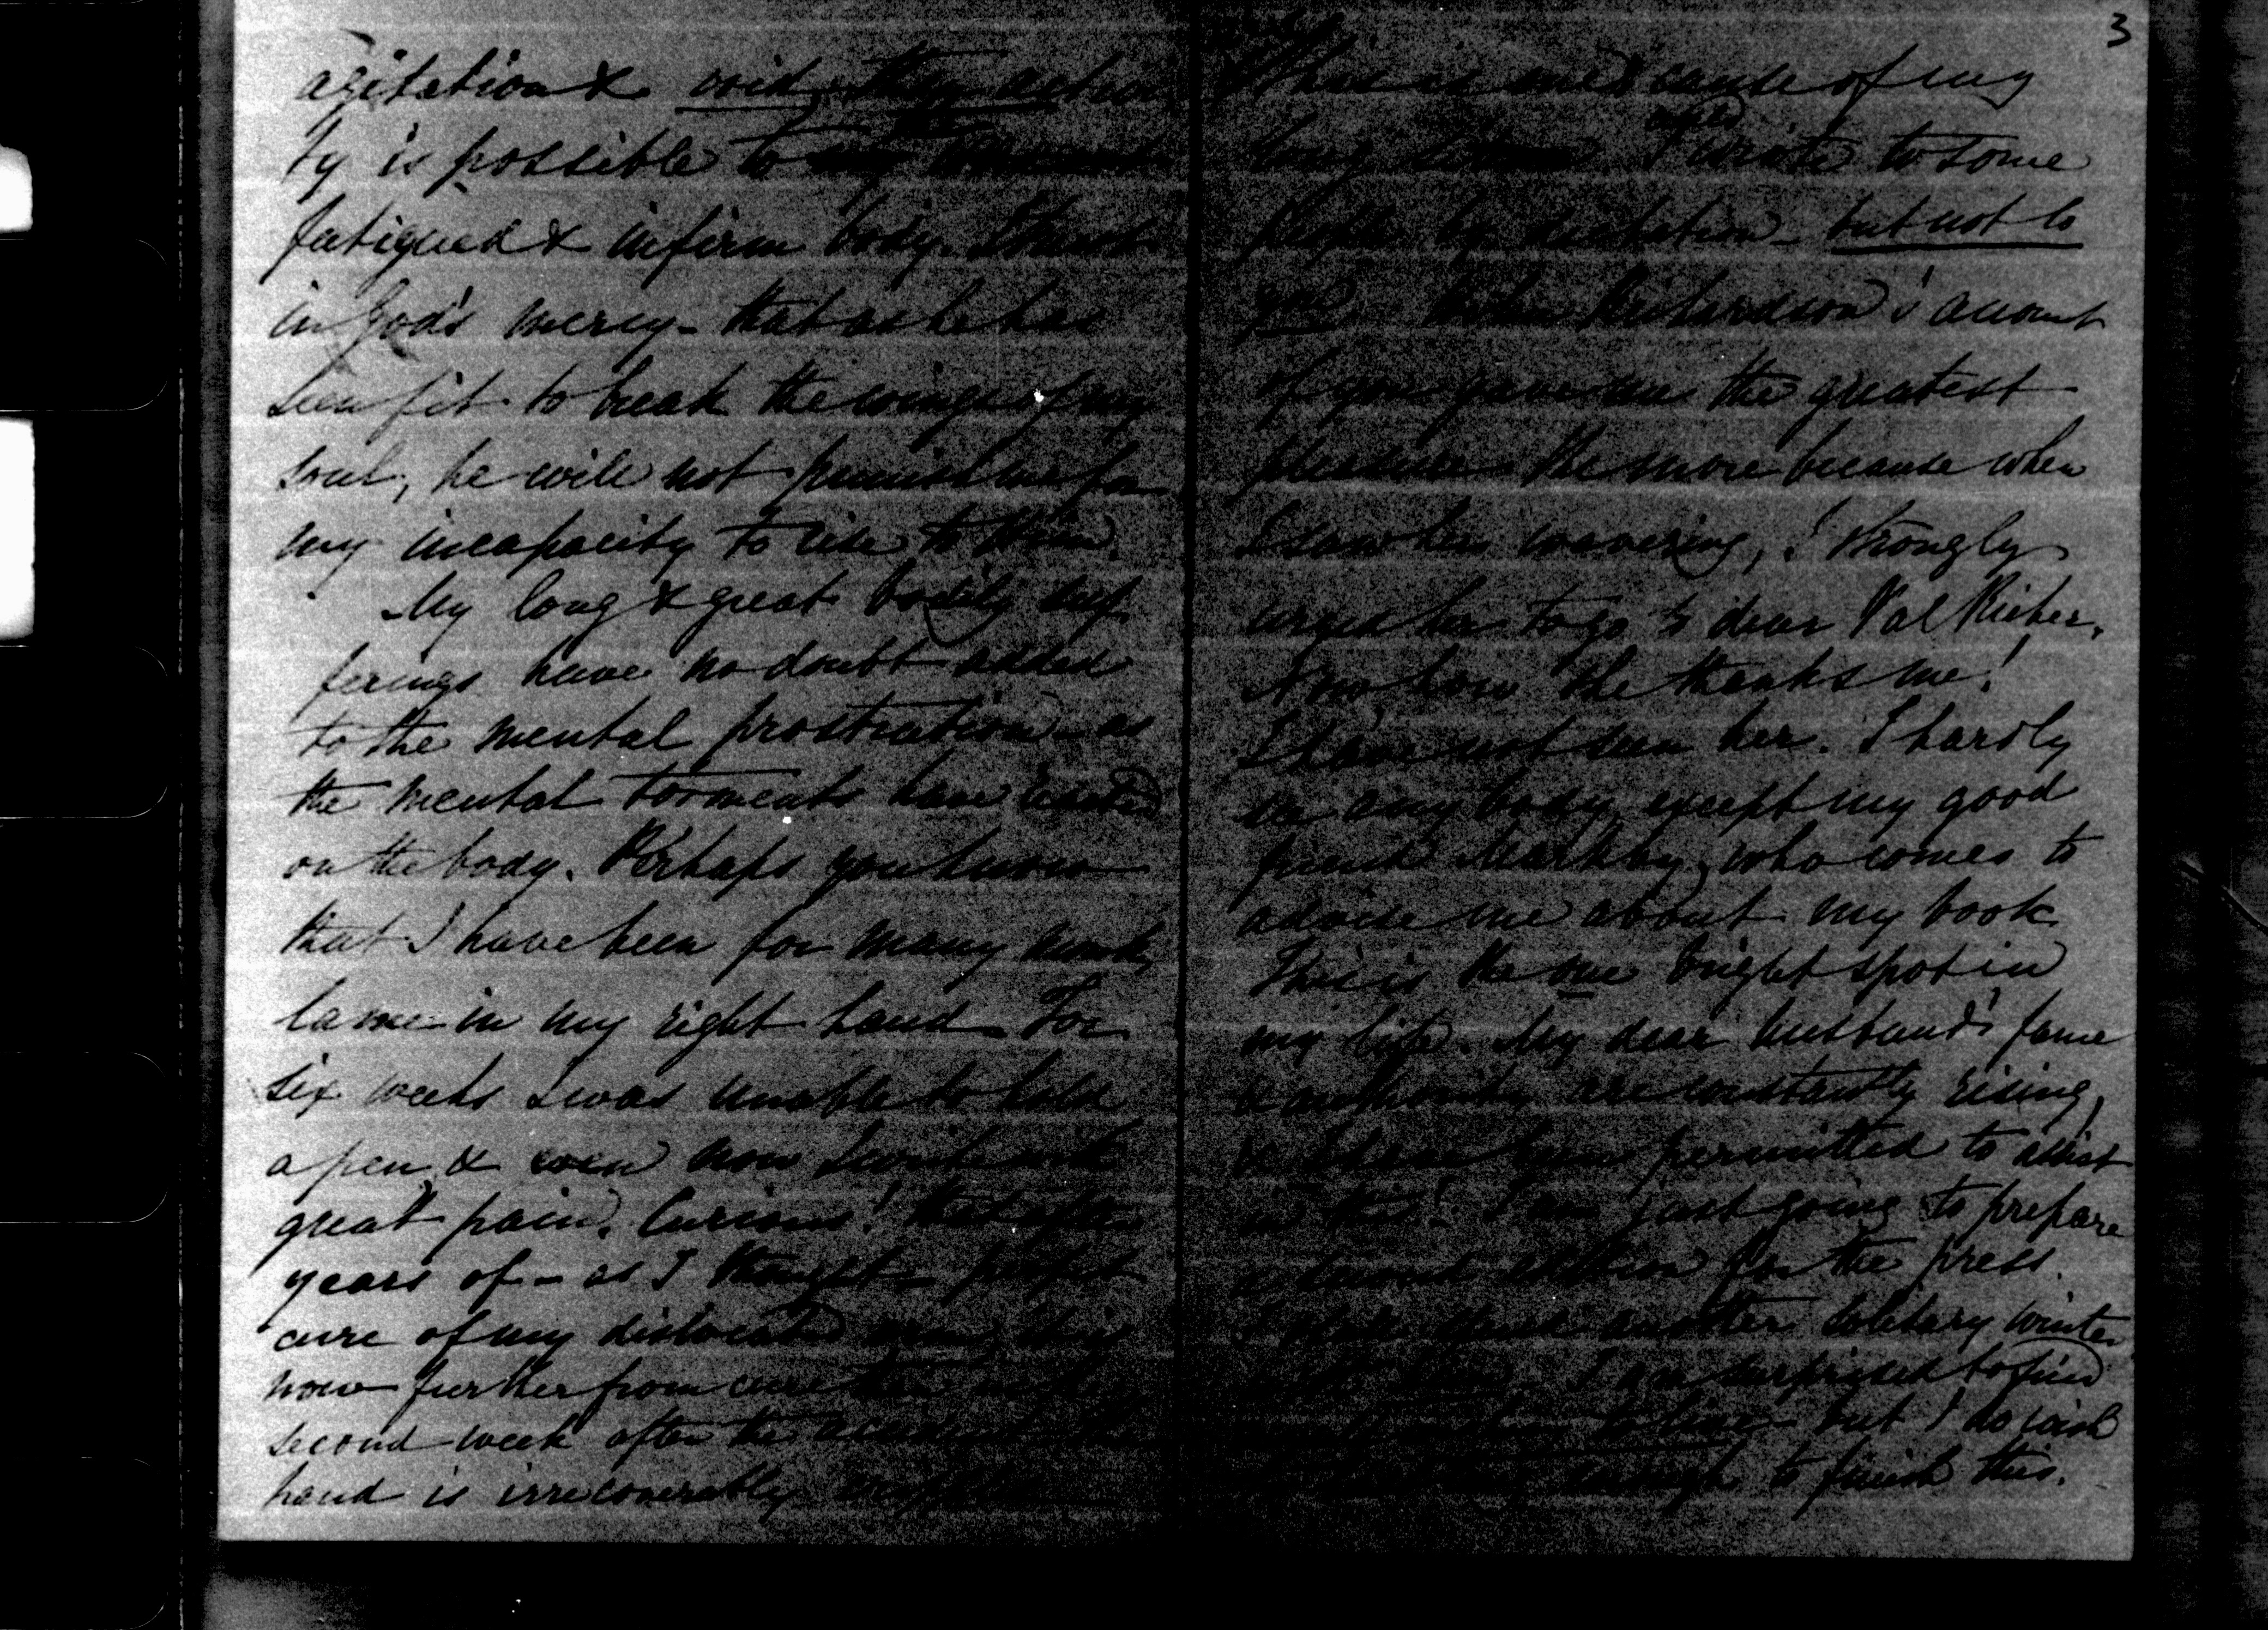 agitation &
ty is possible to
fatigued & infirm body. I trust
in God's mercy - that as he has
seen fit to break the wings of my
soul, he will not punish me for
my incapacity to rise to Him.
My long & great bodily suf
ferings have no doubt added
to the mental prostration - as
the mental torments have reacted
on the body. Perhaps you know
that I have been for many months
lame in my right hand - For
six weeks I was unable to hold
a pen & even now I write with
great pain. Curious! that after
years of - as I thought - perfect
cure of my dislocated arm, it is
now further from cure than in the
second week after the accident. The
hand is irrecoverably crippled
3
This is one cause of my
long I wrote to some
people by dictation - but not to
you Richardson's account
of you gave me the greatest
pleasure the more because when
I saw her wavering, I strongly
urged her to go to dear Val Richer.
Now how she thanks me!
I have not seen her. I hardly
see any body except my good
friend Markby, who comes to
advise me about my book
This is the one bright spot in
my life. My dear husband's fame
& authority are constantly rising,
& I have been permitted to assist
in this! I am just going to prepare
a second edition for the press.
I shall spend another solitary winter
with him. I am surprised to find
but I do wish
enough to finish this.